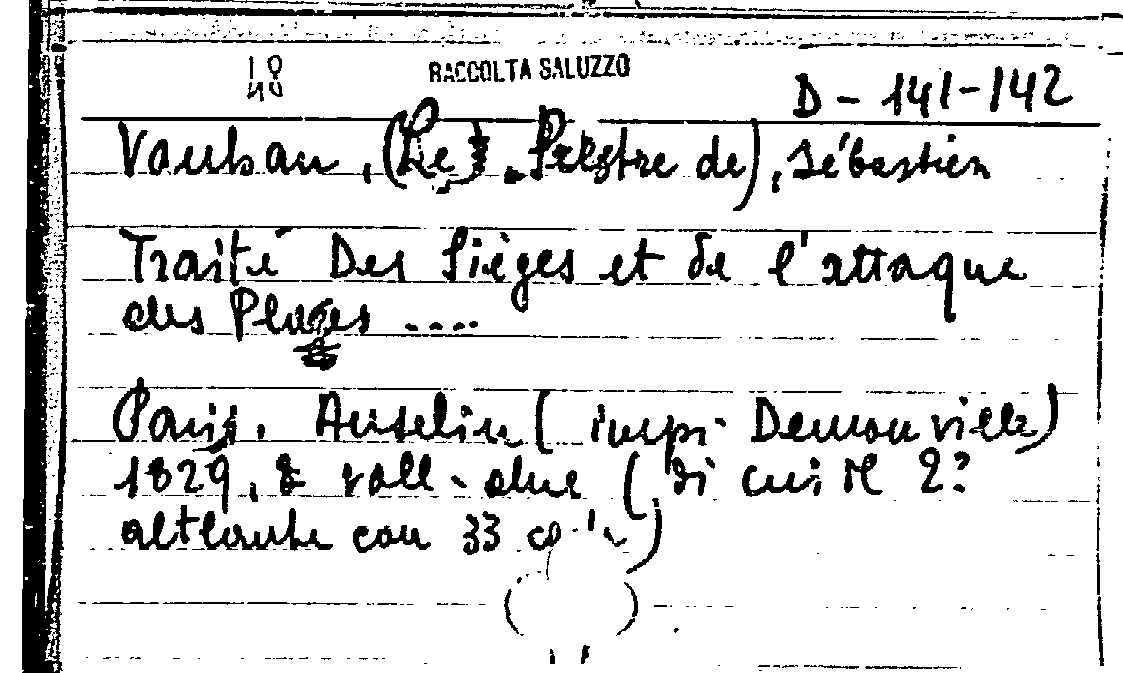 RACCOLTA SALUZZO
D - 141-142
Vauban, (Le Prestre de), Sébastien
Traité Des Sièges et de l'attaque
des Places ....
Paris. Anselin (impr. Demonville)
1829, 2 voll. due (di cui il 2º
atlante con 33